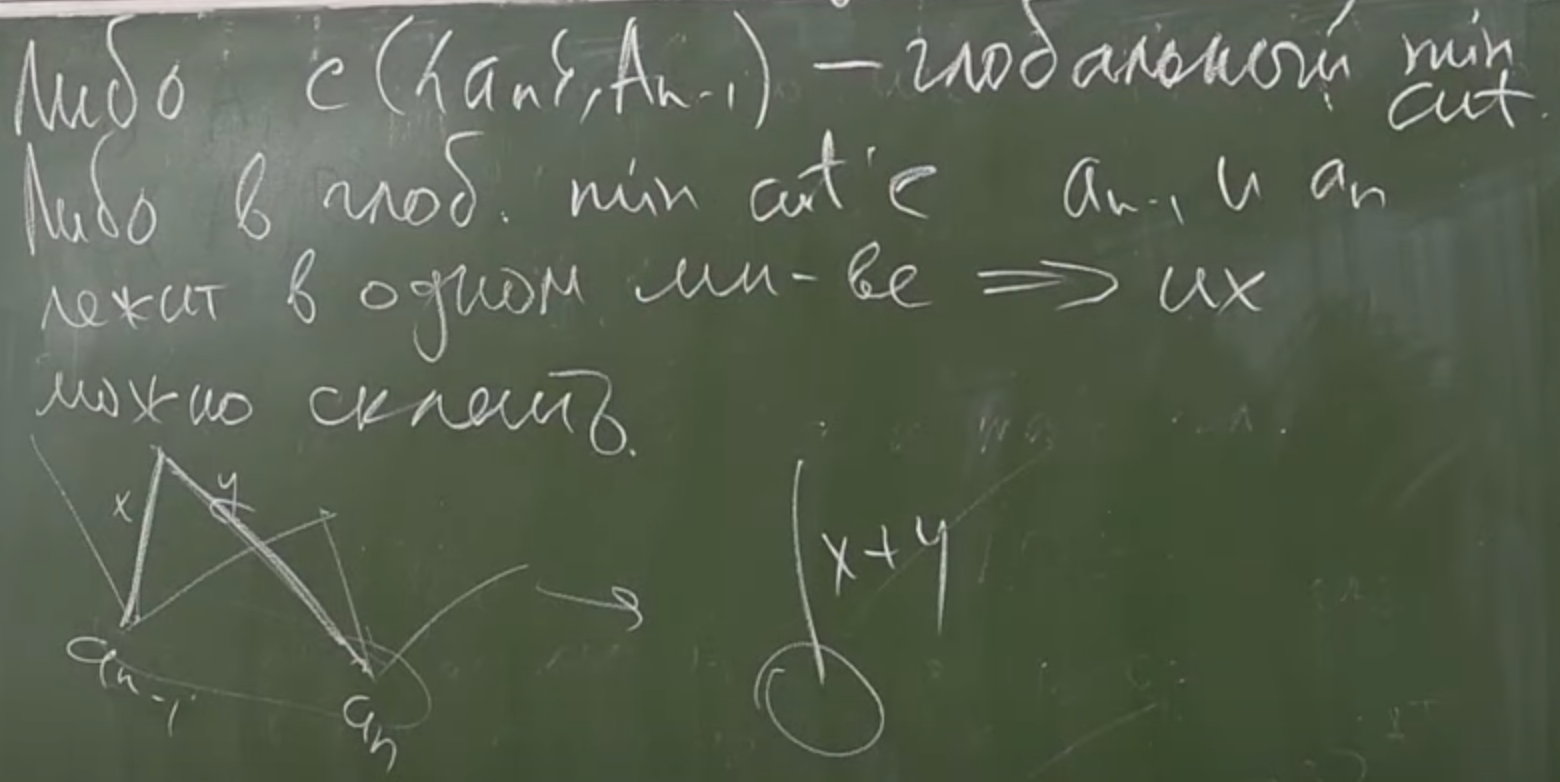 Либо c({aₙ}, Aₙ₋₁) – глобальный min cut.
Либо в глоб. min cut'е aₙ₋₁ и aₙ
лежит в одном мн-ве ⟹ их
можно склеить.
x y
x+y
aₙ₋₁
aₙ